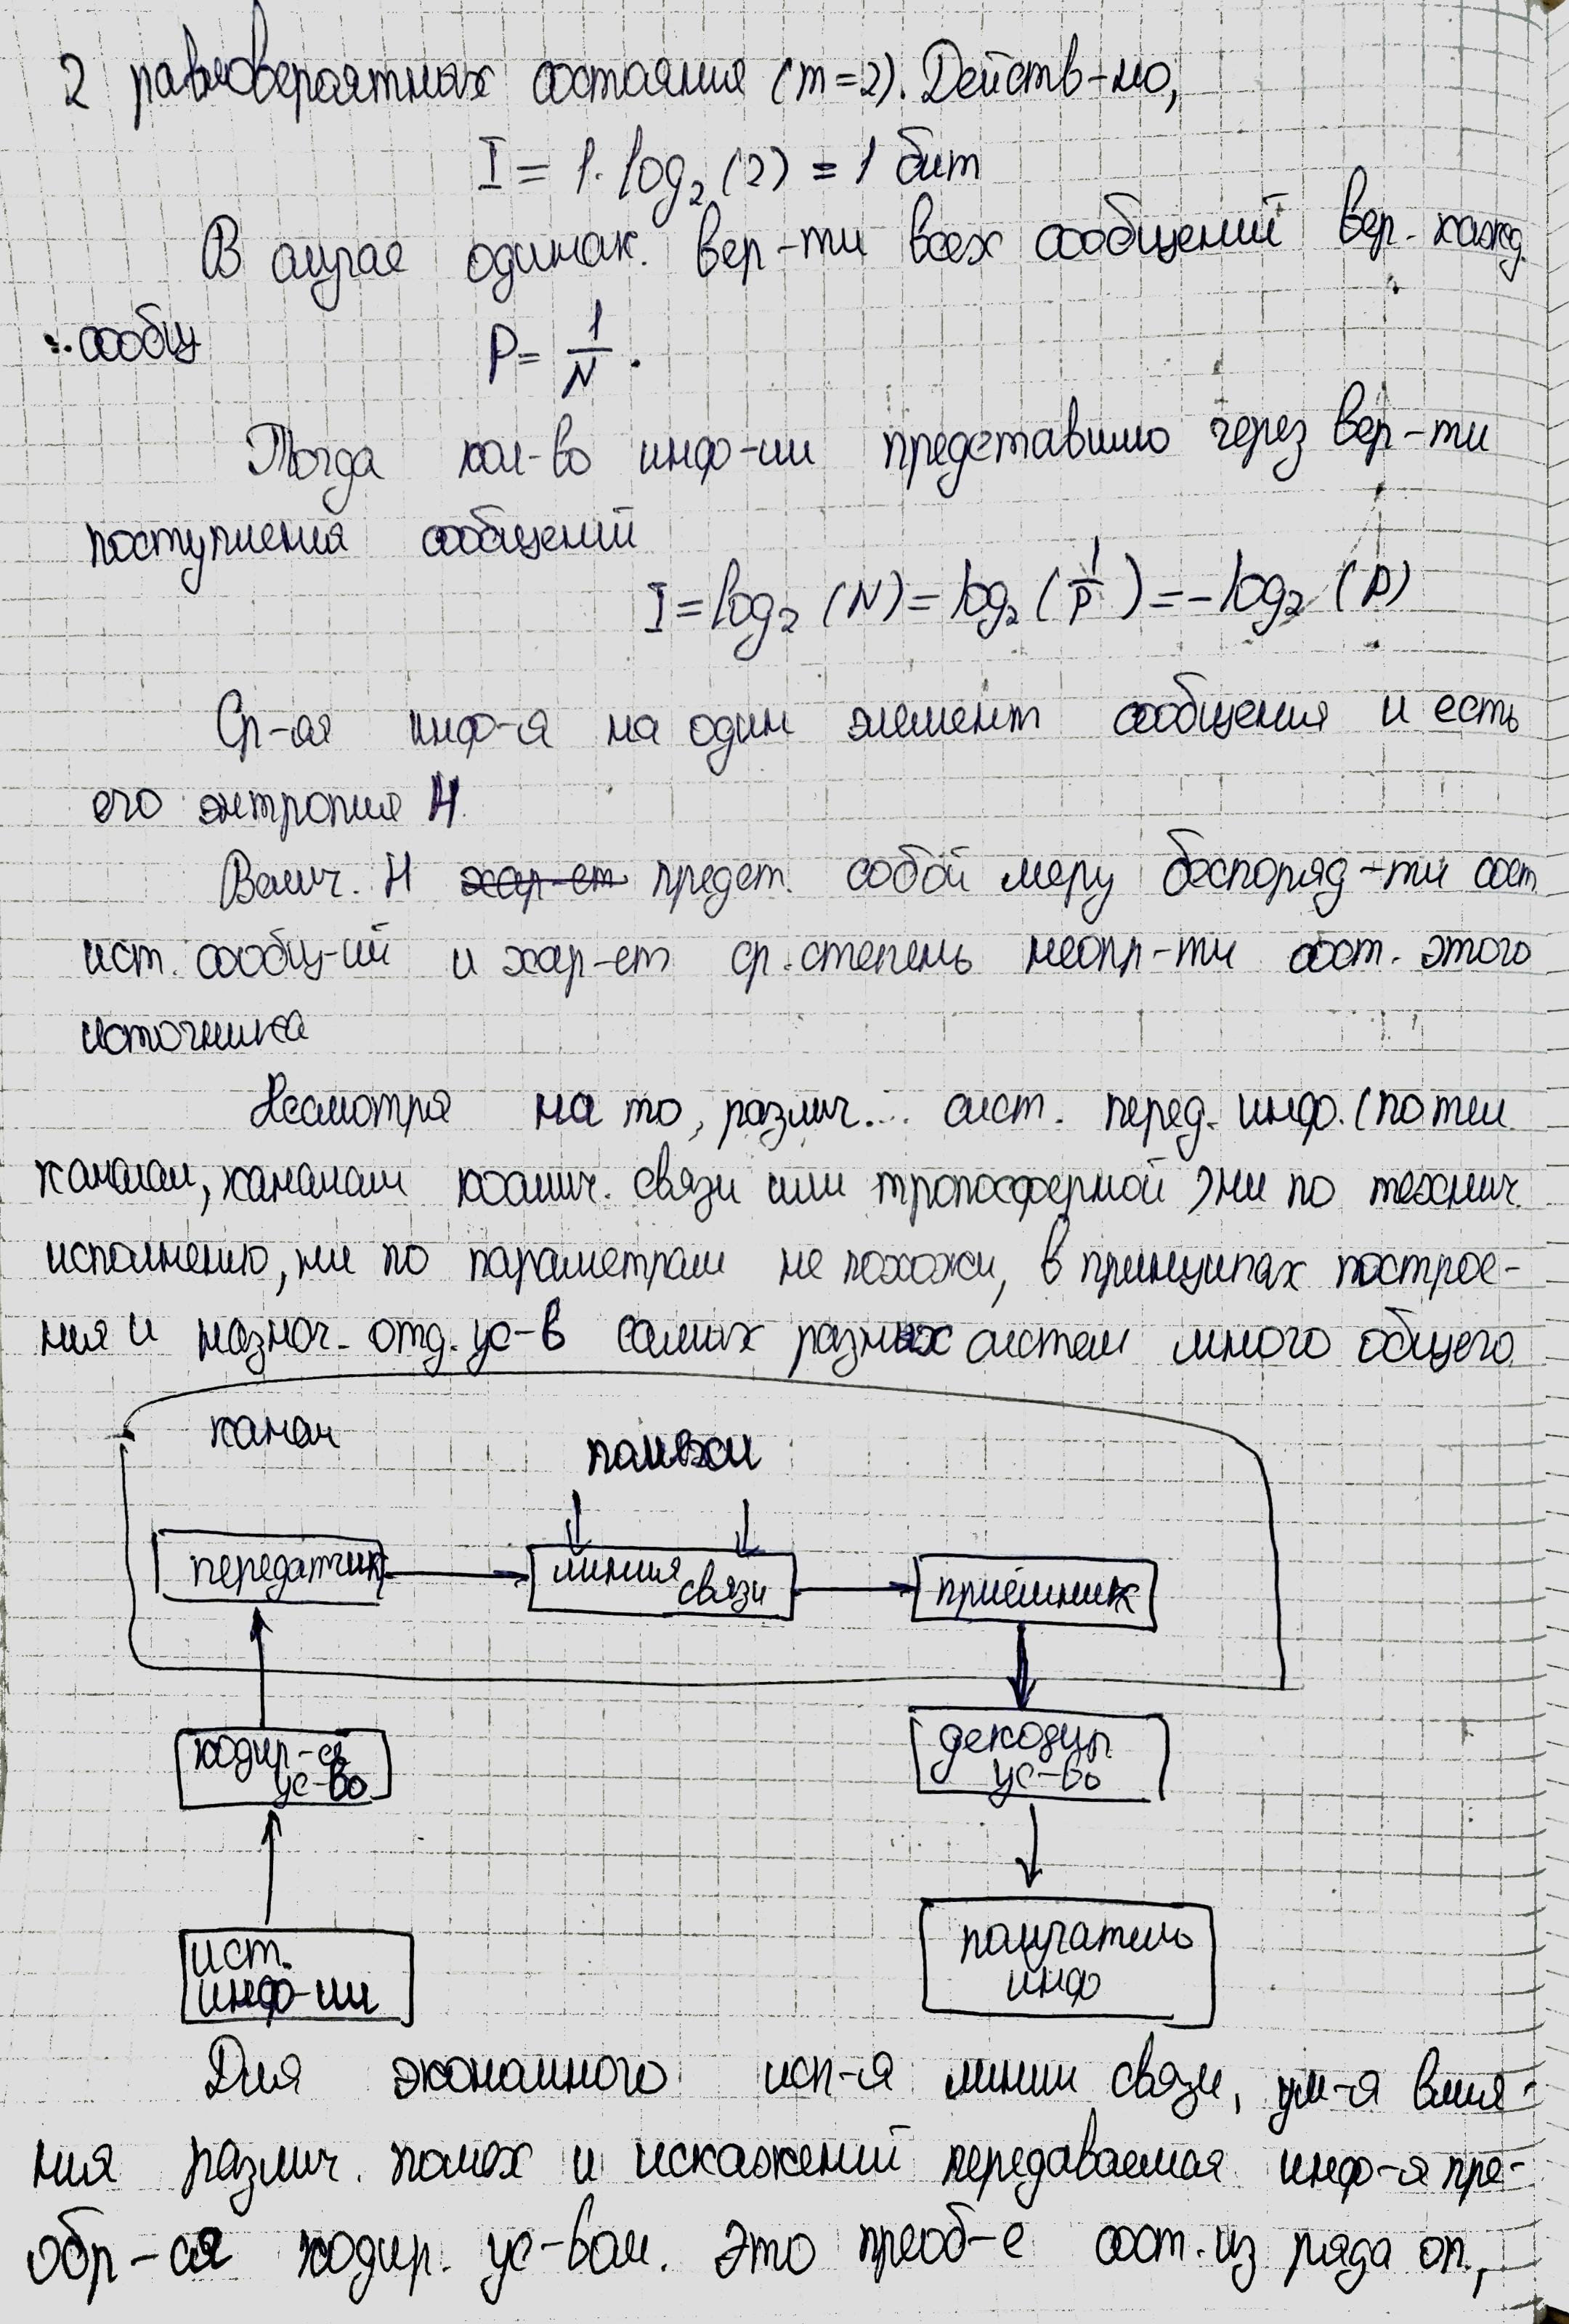 2 равновероятных состояния (m=2). Действ-но,
I = 1 · log₂ (2) = 1 бит
В случае одинак. вер-ти всех сообщений вер. кажд.
сообщ
P = 1/N.
Тогда кол-во инф-ии представимо через вер-ти
поступления сообщений
I = log₂ (N) = log₂ (1/P) = -log₂ (P)
Ср-ая инф-я на один элемент сообщения и есть
его энтропия H.
Велич. H хар-ет предст. собой меру беспоряд-ти сост.
ист. сообщ-ий и хар-ет ср. степень неопр-ти сост. этого
источника
Несмотря на то, различ... сист. перед. инф. (по тел.
каналам, каналам космич. связи или тропосферной) ни по технич.
исполнению, ни по параметрам не похожи, в принципах построе-
ния и назнач. отд. ус-в самых разных систем много общего
канал
помехи
передатчик
линия связи
приёмник
кодир-е
ус-во
декодир
ус-во
ист.
инф-ии
получатель
инф
Для экономного исп-я линии связи, ум-я влия-
ния различ. помех и искажений передаваемая инф-я пре-
обр-ся кодир. ус-вом. Это преоб-е сост. из ряда оп,